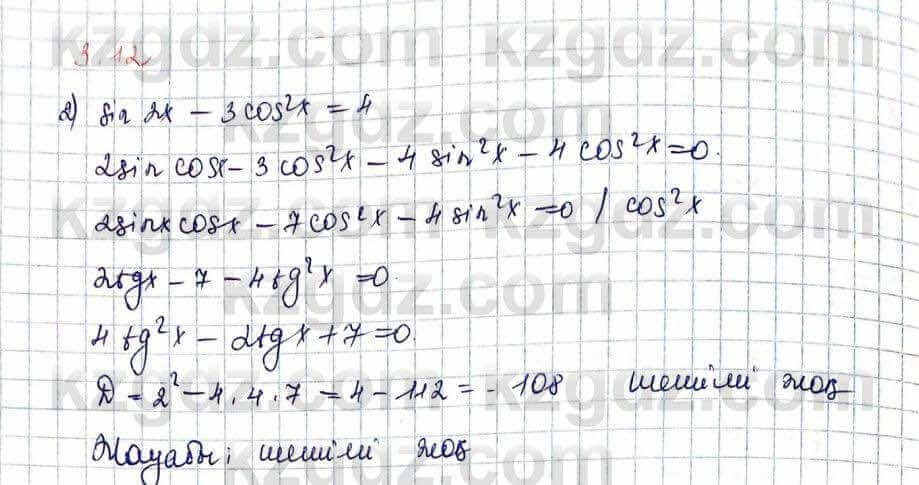 kzgdz.com kzgdz.com
3.12
2) sin 2x - 3cos²x = 4
2sin cosx - 3cos²x - 4 sin²x - 4 cos²x = 0.
2sinx cosx - 7cos²x - 4sin²x = 0 / cos²x
2tgx - 7 - 4tg²x = 0.
4tg²x - 2tgx + 7 = 0.
D = 2² - 4.4.7 = 4 - 112 = - 108 шешімі жоқ
Жауабы; шешімі жоқ